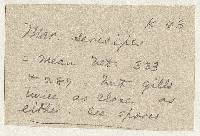 K 43
Mar. 
= mean het. 333
+ 289. but gills
twice as close as
either. See spores